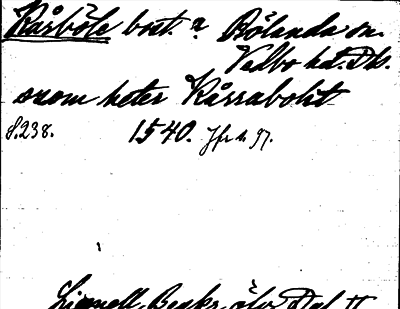 Kårböle bost. i Rölanda sn.
Valbo hd. Dls.
som heter Kårrabolit
s. 238. 1540. Jfr s. 97.
Lignell, Beskr. öfv. Dal II